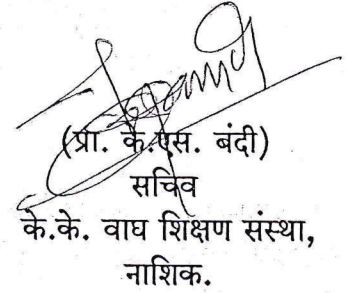 (प्रा. के.एस. बंदी)
सचिव
के.के. वाघ शिक्षण संस्था,
नाशिक.